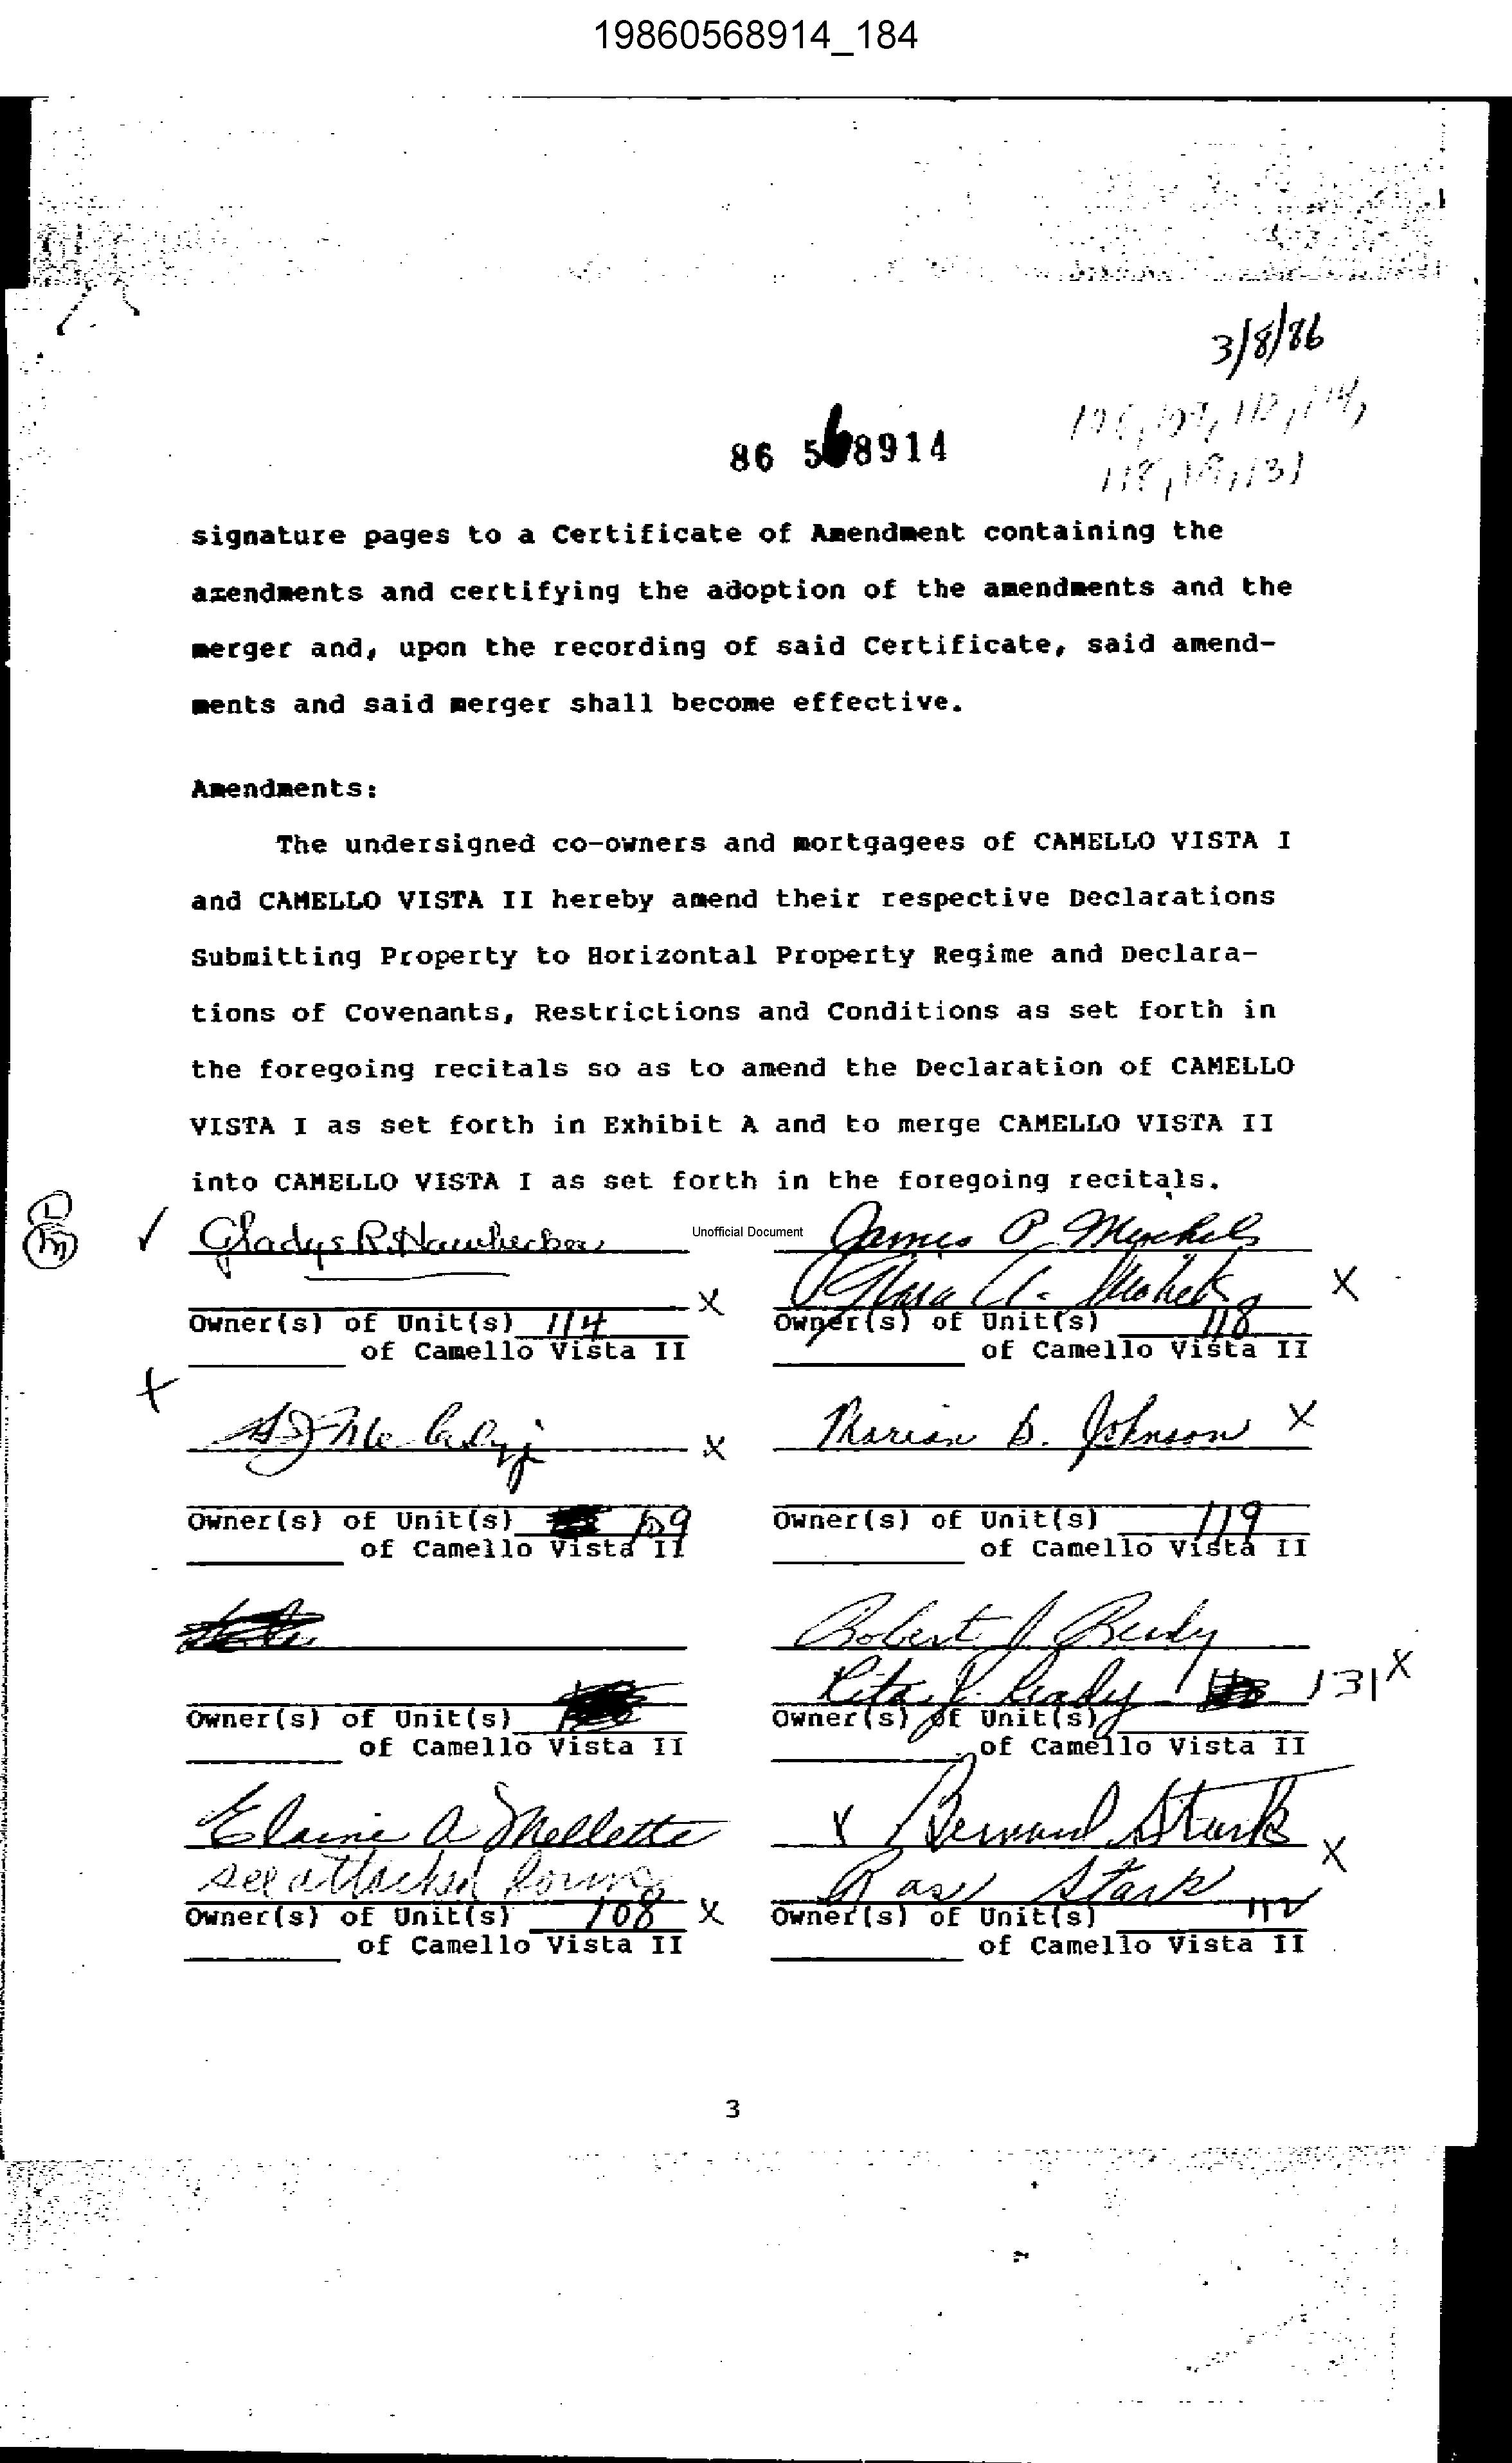 19860568914_184
3/8/86
86 568914
118, 119, 131
signature pages to a Certificate of Amendment containing the
amendments and certifying the adoption of the amendments and the
merger and, upon the recording of said Certificate, said amend-
ments and said merger shall become effective.
Amendments:
The undersigned co-owners and mortgagees of CAMELLO VISTA I
and CAMELLO VISTA II hereby amend their respective Declarations
Submitting Property to Horizontal Property Regime and Declara-
tions of Covenants, Restrictions and Conditions as set forth in
the foregoing recitals so as to amend the Declaration of CAMELLO
VISTA I as set forth in Exhibit A and to merge CAMELLO VISTA II
into CAMELLO VISTA I as set forth in the foregoing recitals.
Gladys R. Unofficial Document James P.
X X
Owner(s) of Unit(s) 114 Owner(s) of Unit(s) 118
of Camello Vista II of Camello Vista II
X Marian B. Johnson X
Owner(s) of Unit(s) 109 Owner(s) of Unit(s) 119
of Camello Vista II of Camello Vista II
Robert J. Ready
Rita J. Ready 131 X
Owner(s) of Unit(s) Owner(s) of Unit(s)
of Camello Vista II of Camello Vista II
Elaine A Mellette X Bernard Stark
see attached Stark X
Owner(s) of Unit(s) 108 X Owner(s) of Unit(s) 112
of Camello Vista II of Camello Vista II
3